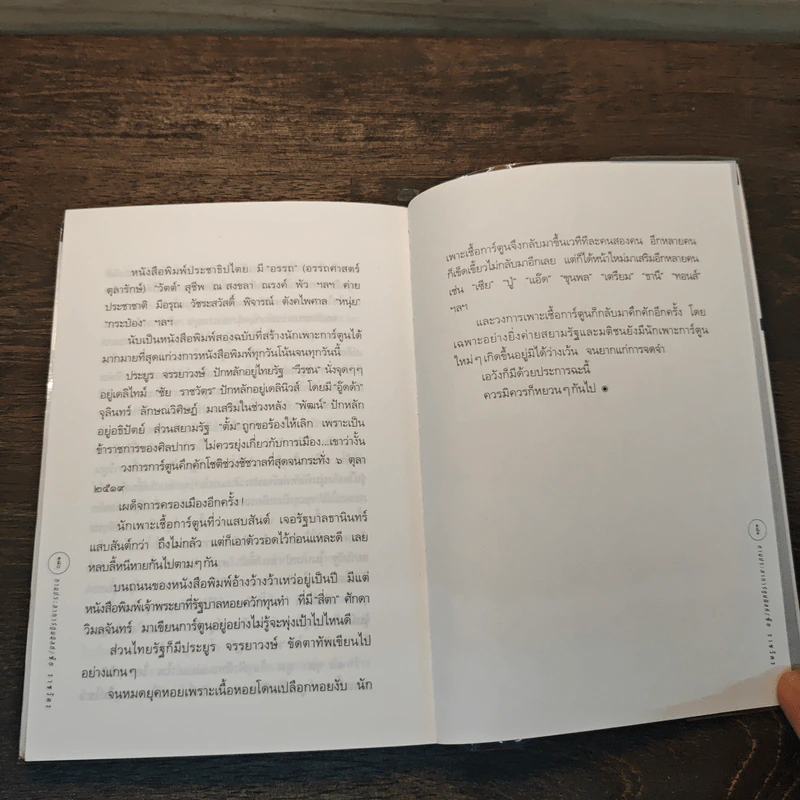 หนังสือพิมพ์ประชาธิปไตย มี "อรรถ" (อรรถศาสตร์
ตุลารักษ์) "วัตต์" สุชีพ ณ สงขลา ณรงค์ พัว ฯลฯ ค่าย
ประชาชาติ มีอรุณ วัชระสวัสดิ์ พิจารณ์ ตังคไพศาล "หนุ่ย"
"กระป๋อง" ฯลฯ
นับเป็นหนังสือพิมพ์สองฉบับที่สร้างนักเพาะการ์ตูนได้
มากมายที่สุดแก่วงการหนังสือพิมพ์ทุกวันโน้นจนทุกวันนี้
ประยูร จรรยาวงษ์ ปักหลักอยู่ไทยรัฐ "วีรชน" นั่งจุดๆๆ
อยู่เดลิไทม์ "ชัย ราชวัตร" ปักหลักอยู่เดลินิวส์ โดยมี "อู๊ดด้า"
จุลินทร์ ลักษณวิศิษฏ์ มาเสริมในช่วงหลัง "พัฒน์" ปักหลัก
อยู่อธิปัตย์ ส่วนสยามรัฐ "ตั้ม" ถูกขอร้องให้เลิก เพราะเป็น
ข้าราชการของศิลปากร ไม่ควรยุ่งเกี่ยวกับการเมือง...เขาว่างั้น
วงการการ์ตูนคึกคักโชติช่วงชัชวาลที่สุดจนกระทั่ง ๖ ตุลา
๒๕๑๙
เผด็จการครองเมืองอีกครั้ง !
นักเพาะเชื้อการ์ตูนที่ว่าแสบสันต์ เจอรัฐบาลธานินทร์
แสบสันต์กว่า ถึงไม่กลัว แต่ก็เอาตัวรอดไว้ก่อนแหละดี เลย
หลบลี้หนีหายกันไปตามๆ กัน
บนถนนของหนังสือพิมพ์อ้างว้างว้าเหว่อยู่เป็นปี มีแต่
หนังสือพิมพ์เจ้าพระยาที่รัฐบาลหอยควักทุนทำ ที่มี "สี่ตา" ศักดา
วิมลจันทร์ มาเขียนการ์ตูนอยู่อย่างไม่รู้จะพุ่งเป้าไปไหนดี
ส่วนไทยรัฐก็มีประยูร จรรยาวงษ์ ขัดตาทัพเขียนไป
อย่างแกนๆ
จนหมดยุคหอยเพราะเนื้อหอยโดนเปลือกหอยงับ นัก
เพาะเชื้อการ์ตูนจึงกลับมาขึ้นเวทีทีละคนสองคน อีกหลายคน
ก็เข็ดเขี้ยวไม่กลับมาอีกเลย แต่ก็ได้หน้าใหม่มาเสริมอีกหลายคน
เช่น "เซีย" "ปู่" "แอ๊ด" "ขุนพล" "เตรียม" "ธานี" "ทอนส์"
ฯลฯ
และวงการเพาะเชื้อการ์ตูนก็กลับมาคึกคักอีกครั้ง โดย
เฉพาะอย่างยิ่งค่ายสยามรัฐและมติชนยังมีนักเพาะการ์ตูน
ใหม่ๆ เกิดขึ้นอยู่มิได้ว่างเว้น จนยากแก่การจดจำ
เอวังก็มีด้วยประการฉะนี้
ควรมิควรก็หยวนๆ กันไป